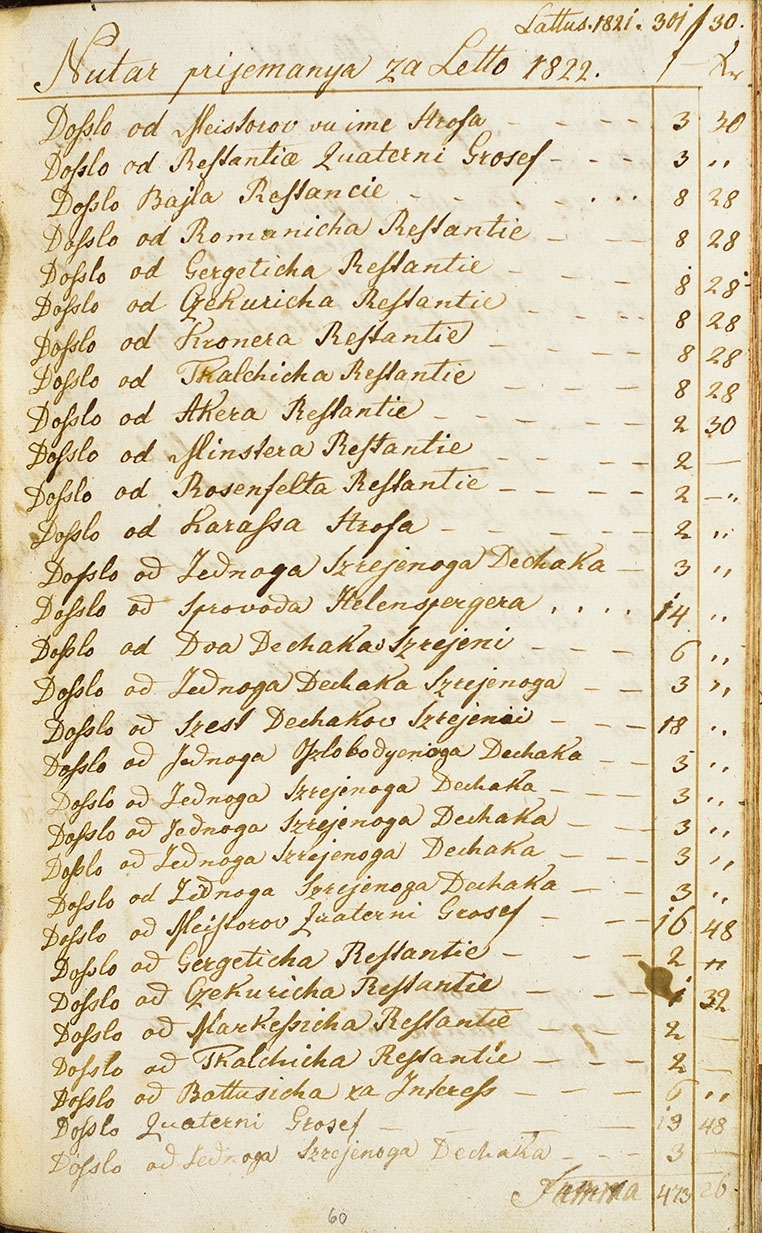 Lattus. 1821. 301 f 30.
Nutar prijemanya za Letto 1822. f Xr
Doſslo od Meistorov vu ime Strofa - - - - 3 30
Doſslo od Reſtantiæ Quaterni Groseſ - - - 3 "
Doſslo Bajla Reſtancie - - - - . . . 8 28
Doſslo od Romanicha Reſtantie - - - 8 28
Doſslo od Gergeticha Reſtantie - - - 8 28
Doſslo od Czekuricha Reſtantie - - - 8 28
Doſslo od Kronera Reſtantie - - - - 8 28
Doſslo od Tkalchicha Reſtantie - - - 8 28
Doſslo od Akera Reſtantie - - - - - 2 30
Doſslo od Minstera Reſtantie - - - - 2 —
Doſslo od Rosenfelta Reſtantie - - - - 2 — "
Doſslo od Karaſsa Strofa - - - - - 2 "
Doſslo od Jednoga Szrejenoga Dechaka - 3 "
Doſslo od Sprovoda Helenspergera . . . . 14 "
Doſslo od Dva Dechakov Szrejeni - - - - 6 "
Doſslo od Jednoga Dechaka Szrejenoga - - 3 "
Doſslo od Szest Dechakov Szrejenii - - - 18 "
Doſslo od Jednoga Oſzlobodyenoga Dechaka - - 3 "
Doſslo od Jednoga Szrejenoga Dechaka - - - 3 "
Doſslo od Jednoga Szrejenoga Dechaka - - - 3 "
Doſslo od Jednoga Szrejenoga Dechaka - - - 3 "
Doſslo od Jednoga Szrejenoga Dechaka - - - 3 "
Doſslo od Meiſtorov Quaterni Groseſ - - - 16 48
Doſslo od Gergeticha Reſtantie - - - - 2 "
Doſslo od Czekuricha Reſtantie - - - - 1 32
Doſslo od Markeſsicha Reſtantie - - - 2 —
Doſslo od Tkalchicha Reſtantie - - - - 2 —
Doſslo od Battusicha za Intereſs - - - - 6 "
Doſslo Quaterni Groseſ - - - - - 13 48
Doſslo od Jednoga Szrejenoga Dechaka - - - 3 —
Summa 473 26.
60